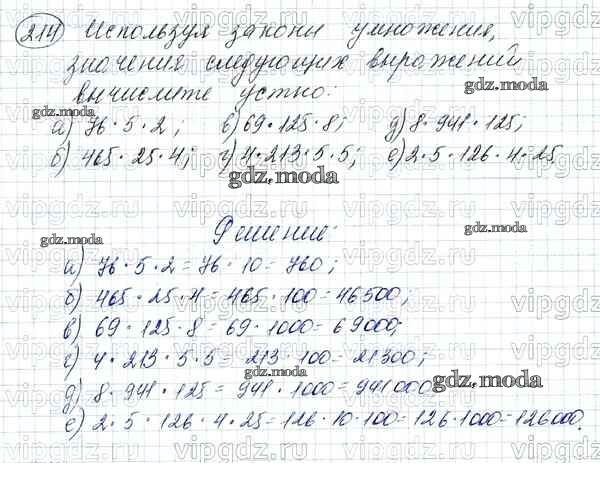 214 Используя законы умножения,
значения следующих выражений
вычислите устно:
а) 76 · 5 · 2; в) 69 · 125 · 8; д) 8 · 941 · 125;
б) 465 · 25 · 4; г) 4 · 213 · 5 · 5; е) 2 · 5 · 126 · 4 · 25.
Решение:
а) 76 · 5 · 2 = 76 · 10 = 760;
б) 465 · 25 · 4 = 465 · 100 = 46500;
в) 69 · 125 · 8 = 69 · 1000 = 69000;
г) 4 · 213 · 5 · 5 = 213 · 100 = 21300;
д) 8 · 941 · 125 = 941 · 1000 = 941000.
е) 2 · 5 · 126 · 4 · 25 = 126 · 10 · 100 = 126 · 1000 = 126000.
gdz.moda
vipgdz.ru